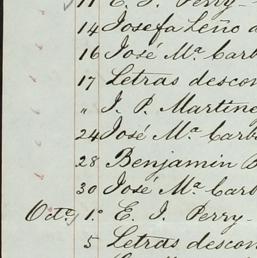 11 E. I. Perry
14 Josefa Leño
16 José Mª Carb
17 Letras descon
" J. P. Martíne
24 José Mª Carb
28 Benjamin B
30 José Mª Carb
Octe 1.º E. I. Perry
5 Letras descon